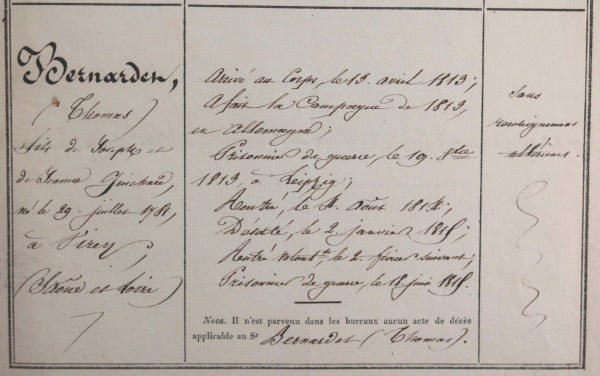 Bernardet,
(Thomas)
fils de Joseph et
de France Guichard,
né le 29. juillet 1781,
à
(Saône et Loire)
Arrivé au Corps, le 13. avril 1813;
A fait la Campagne de 1813,
en Allemagne;
Prisonnier de guerre, le 19. 8bre
1813, à Leipzig;
Rentré, le 4. Août 1814;
Déserté, le 2. janvier 1815;
Rentré volontre, le 2. février suivant;
Prisonnier de guerre, le 18 juin 1815.
Nota. Il n'est parvenu dans les bureaux aucun acte de décès
applicable au Sr Bernardet (Thomas).
Sans
renseignemens
ultérieurs.